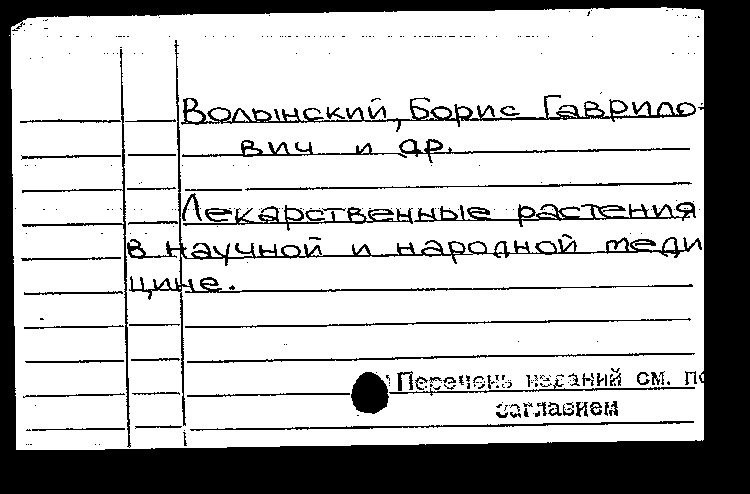 Волынский, Борис Гаврило-
вич и др.
Лекарственные растения
в научной и народной меди
цине.
Перечень изданий см. по
заглавием